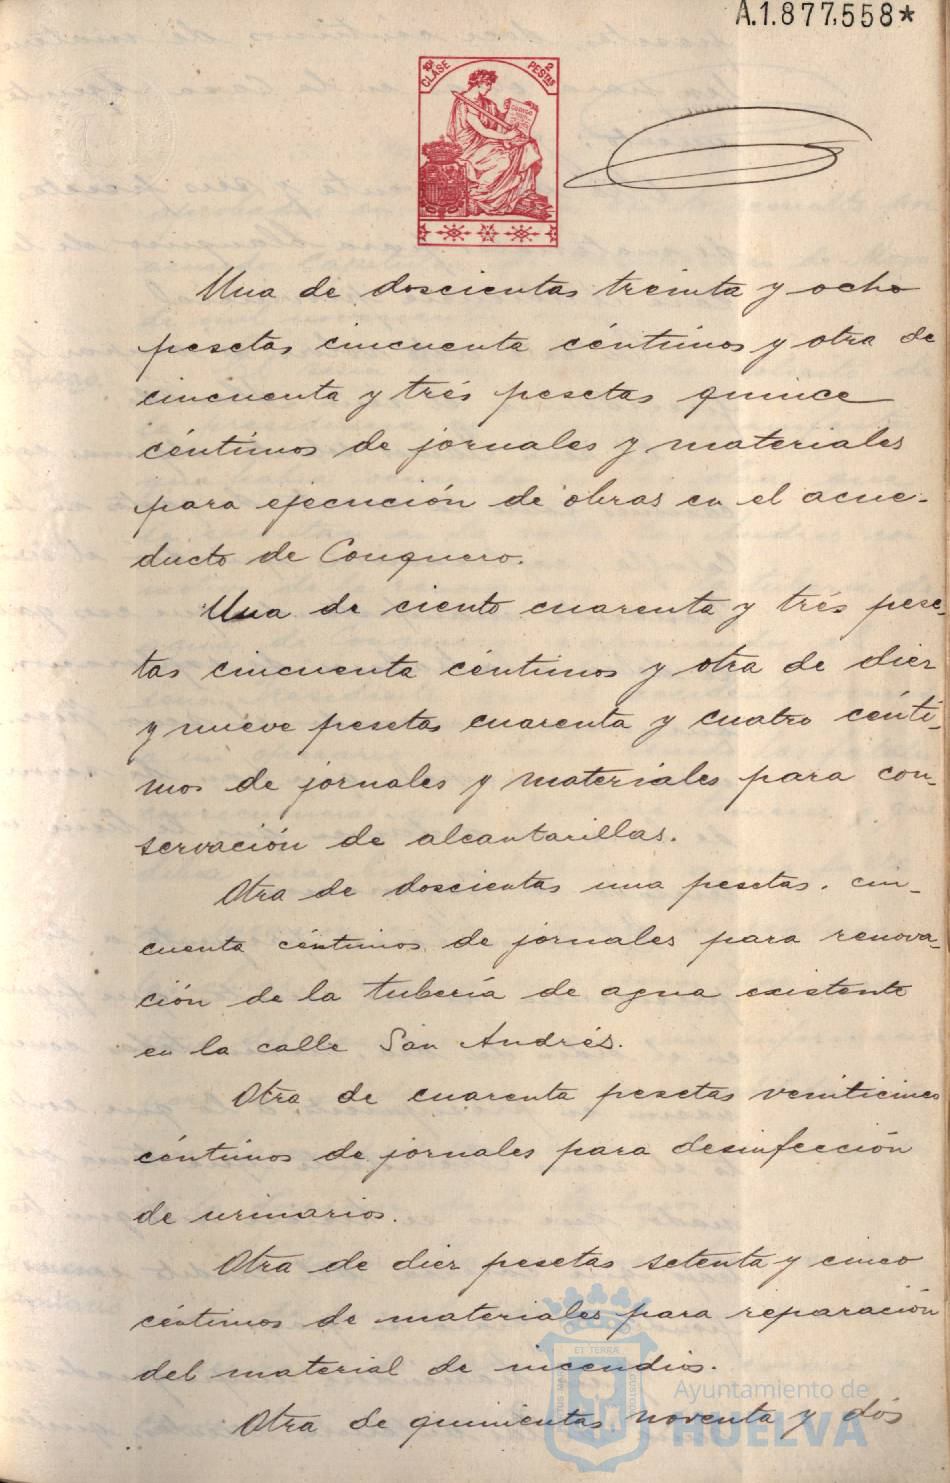 A.1.877.558*
10ª CLASE
2 PESTAS
Una de doscientas treinta y ocho
pesetas cincuenta céntimos y otra de
cincuenta y trés pesetas quince
céntimos de jornales y materiales
para ejecución de obras en el acue-
ducto de Conquero.
Una de ciento cuarenta y trés pese-
tas cincuenta céntimos y otra de diez
y nueve pesetas cuarenta y cuatro cénti-
mos de jornales y materiales para con-
servación de alcantarillas.
Otra de doscientas una pesetas. cin-
cuenta céntimos de jornales para renova-
ción de la tubería de agua existente
en la calle San Andrés.
Otra de cuarenta pesetas veinticinco
céntimos de jornales para desinfección
de urinarios.
Otra de diez pesetas setenta y cinco
céntimos de materiales para reparación
del material de incendios.
Otra de quinientas noventa y dós
ET TERRÆ
Ayuntamiento de
HUELVA